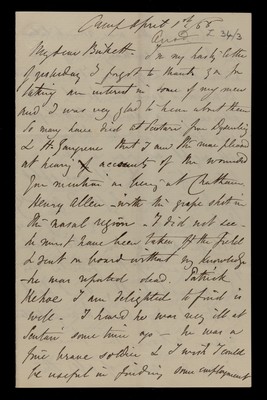 Camp April 1st, 56
My dear Birkett - In my hasty letter
of yesterday I forgot to thank you for
taking an interest in some of my men
and I was very glad to hear about them
So many have died at Scutari from Dysentery
& H. Gangrene that I was the more pleased
at hearing accounts of the wounded
you mention as being at Chatham.
Henry Allen - with the grape shot in
the nasal region - I did not see -
he must have been taken off the field
& sent on board without my knowledge
- he was reported dead. Patrick
Kehoe I am delighted to find is
well - I heard he was very ill at
Scutari some time ago - he was a
fine brave soldier & I wish I could
be useful in finding some employment